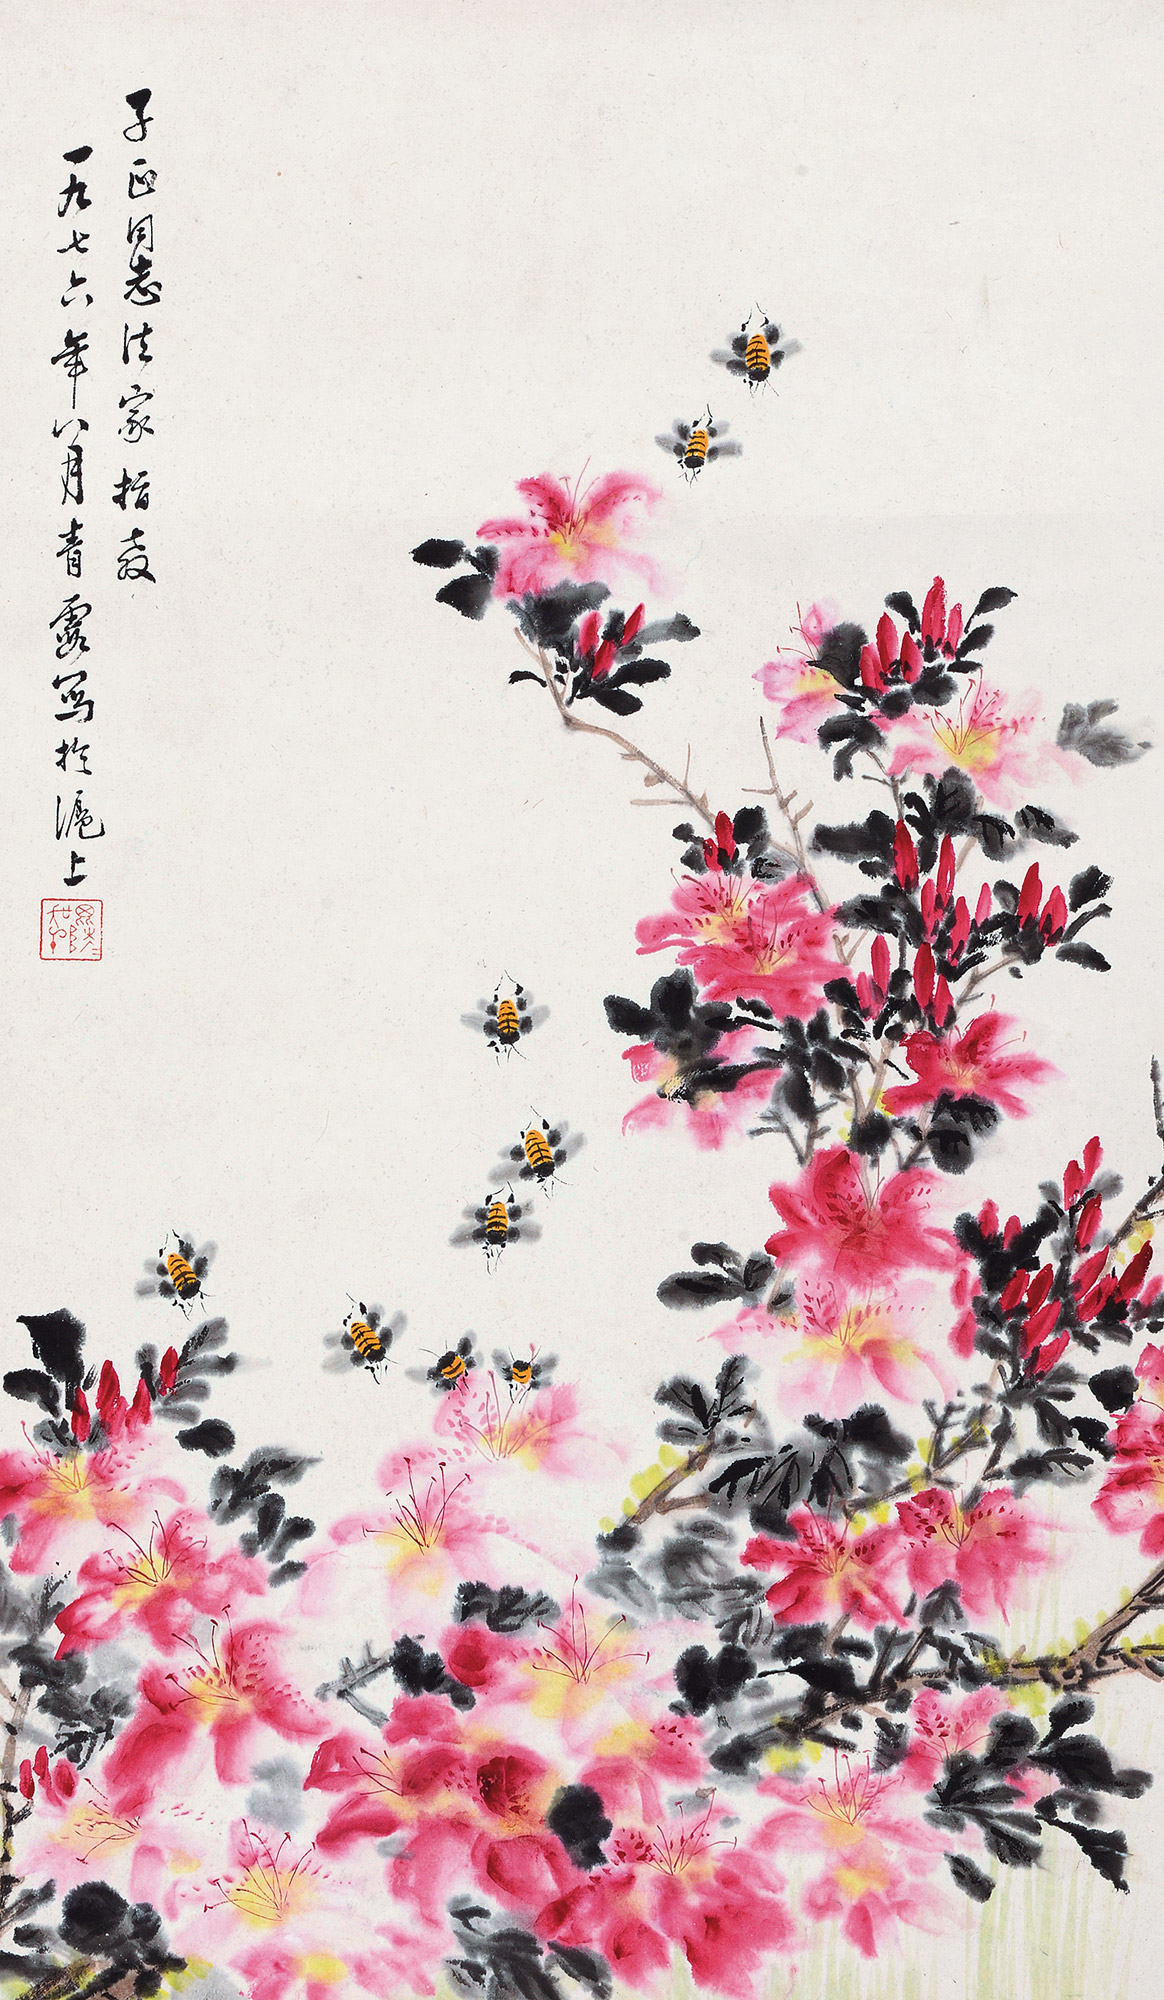 子正同志法家指教
一九七六年八月青霞写於滬上